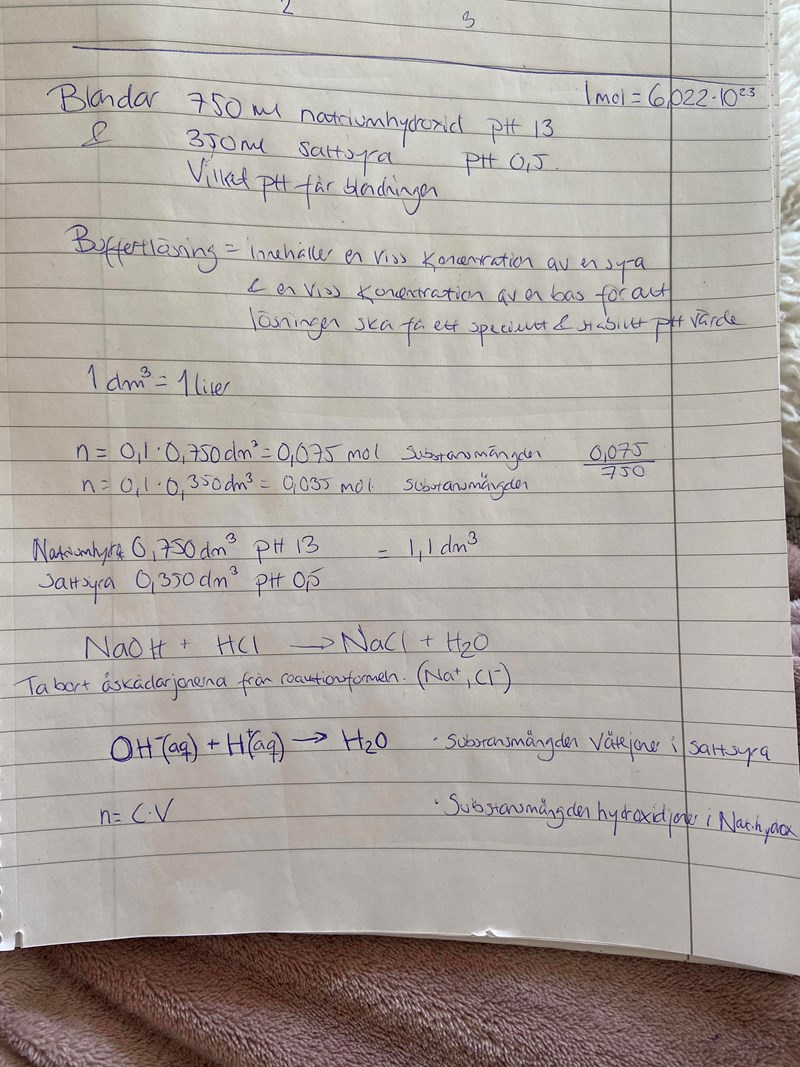 2 3
1 mol = 6,022·10²³
Blandar 750 ml natriumhydroxid pH 13
& 350ml saltsyra pH 0,5.
Vilket pH får blandningen
Buffertlösning = innehåller en viss koncentration av en syra
& en viss koncentration av en bas för att
lösningen ska få ett speciellt & stabilt pH värde
1 dm³ = 1 liter
n = 0,1 · 0,750 dm³ = 0,075 mol Substansmängden 0,075/750
n = 0,1 · 0,350 dm³ = 0,035 mol substansmängden
0,750 dm³ pH 13 = 1,1 dm³
Saltsyra 0,350 dm³ pH 0,5
NaOH + HCl → NaCl + H₂O
Ta bort åskådarjonerna från reaktionsformeln. (Na⁺, Cl⁻)
OH⁻(aq) + H⁺(aq) → H₂O · Substansmängden Vätejoner i saltsyra
n = C·V · Substansmängden hydroxidjoner i Nat.hydrox